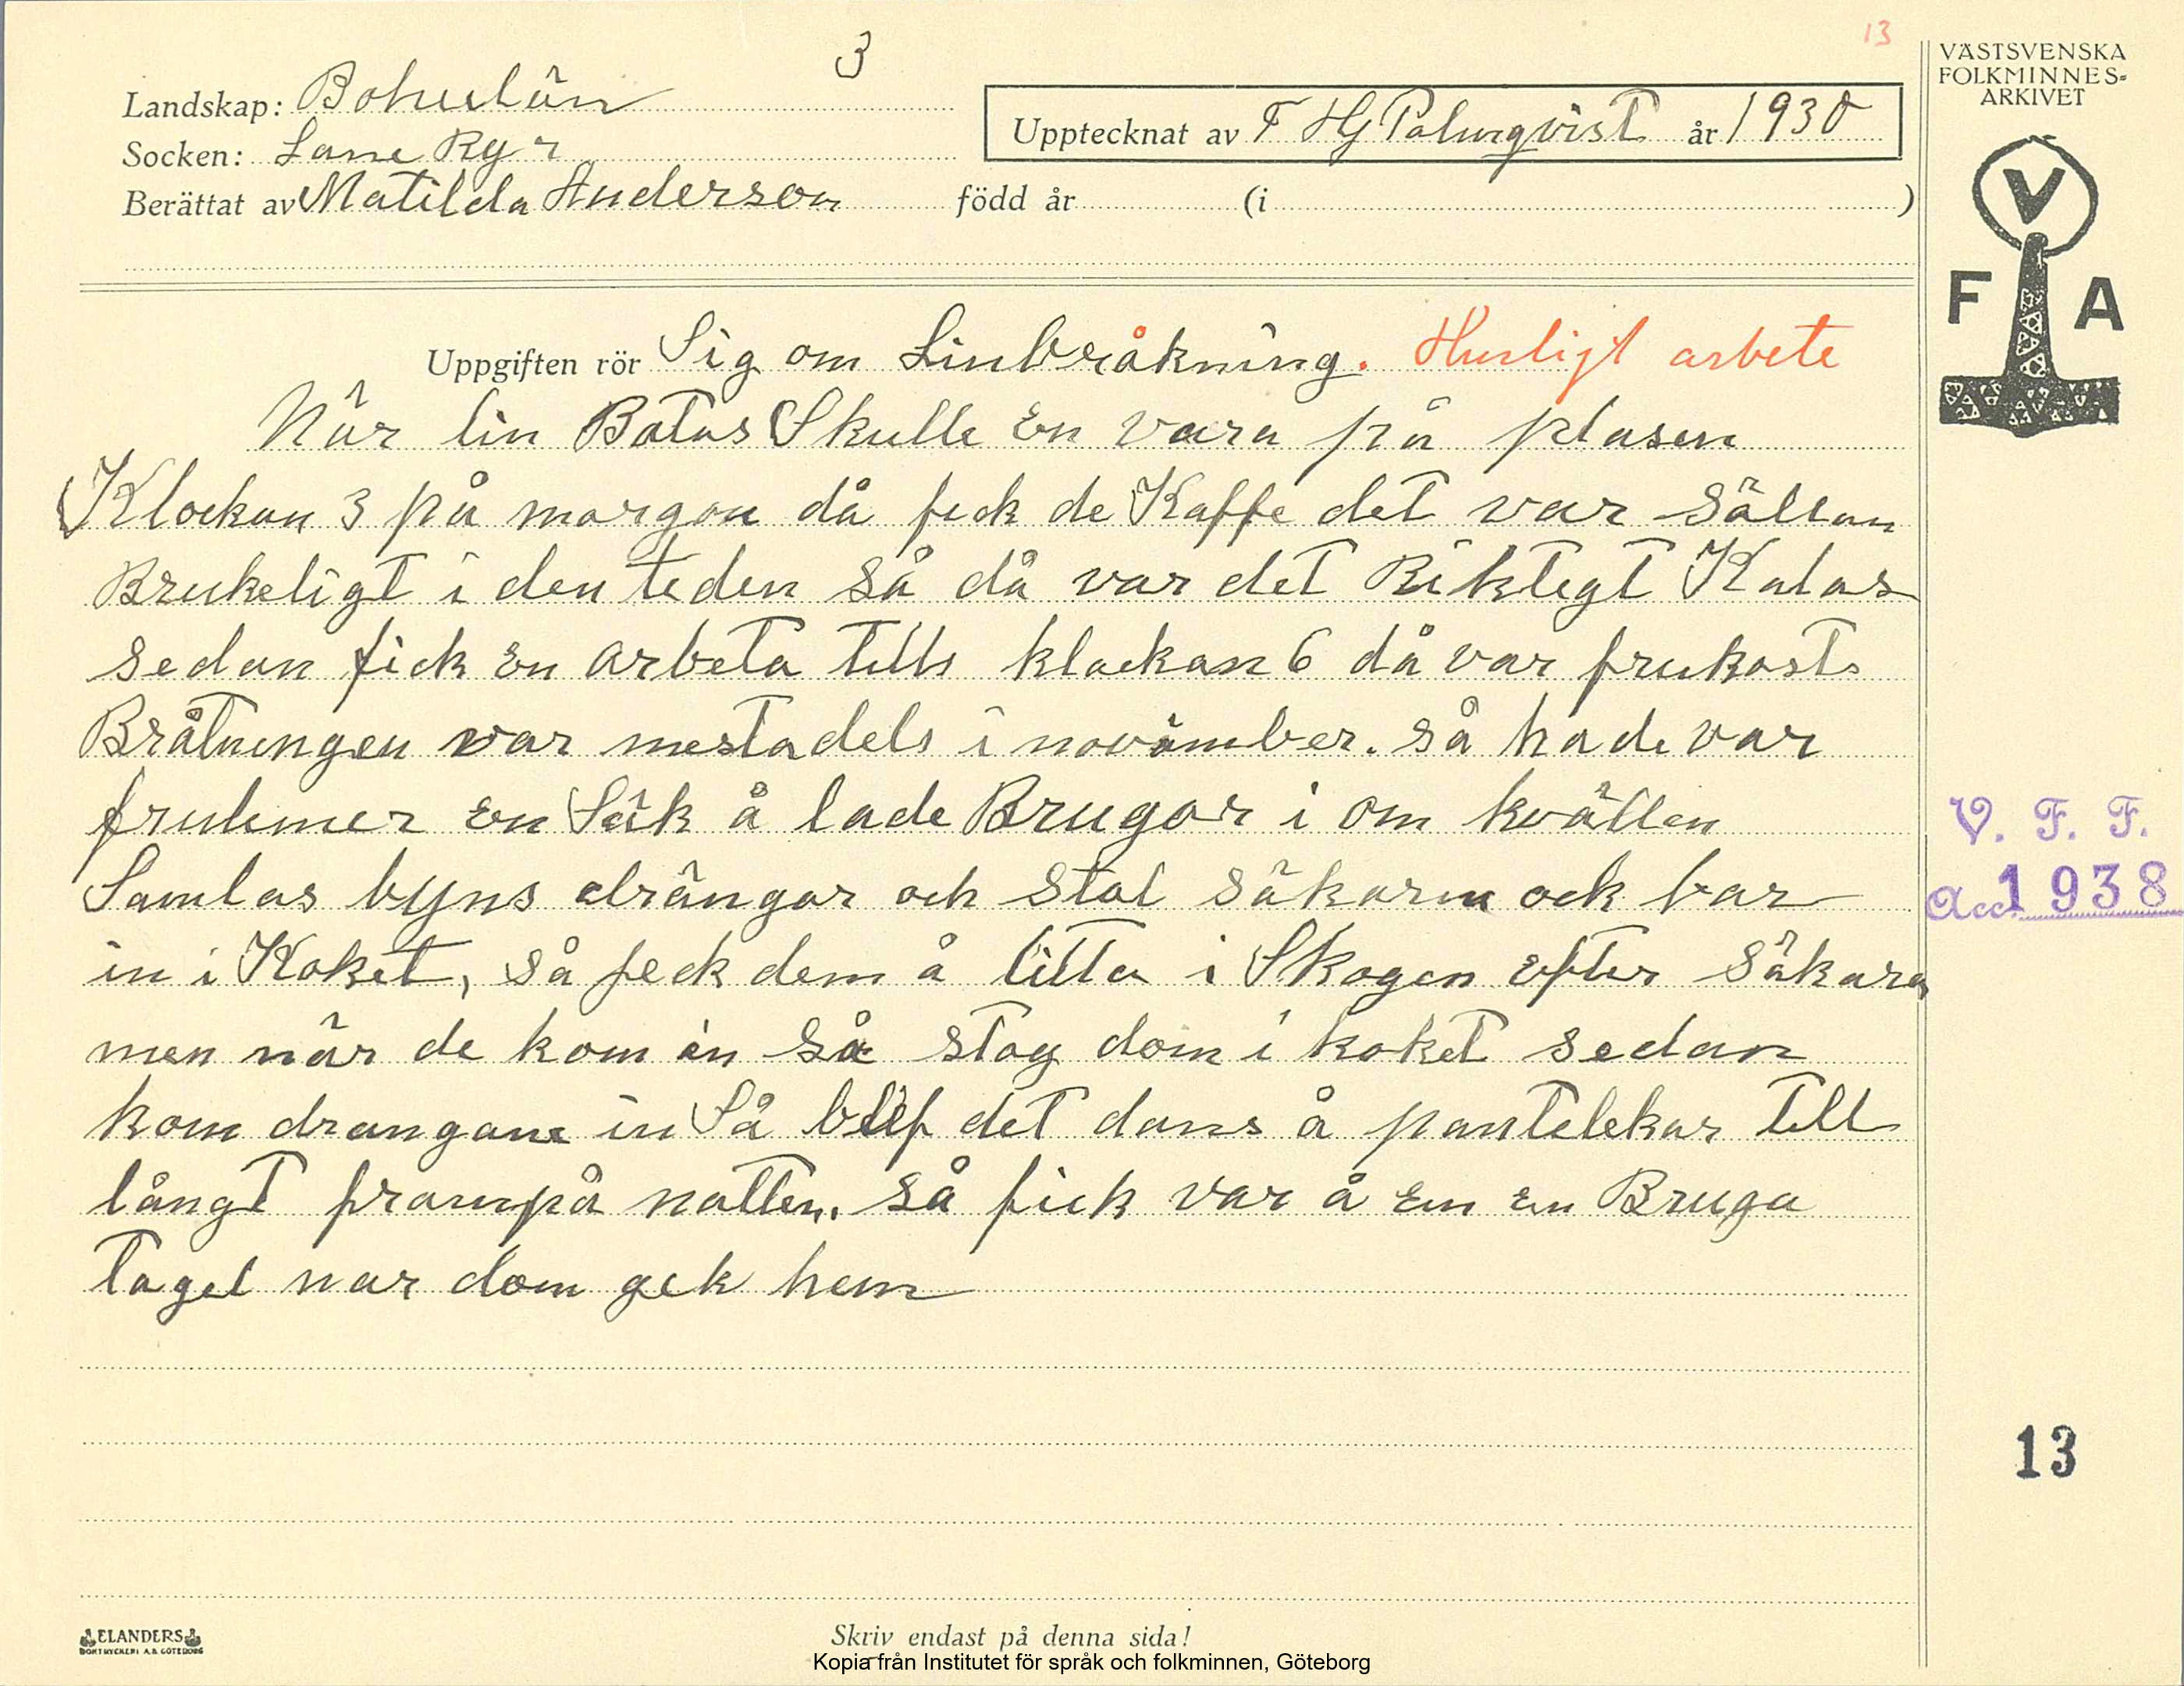 13
3
VÄSTSVENSKA
FOLKMINNES-
ARKIVET
Landskap: Bohuslän
Upptecknat av F Hj Palmqvist år 1930
Socken: Lane Ryr
Berättat av Matilda Anderson född år (i )
V
F A
Uppgiften rör Sig om Linbråkning. Husligt arbete
När lin Botas Skulle En vara på plasen
Klockan 3 på morgon då fick de Kaffe det var Sällan
Brukeligt i den teden så då var det Riktegt Kalas
sedan fick En arbeta tills klockan 6 då var frukosts
Bråtningen var mestadels i novämber. så hade var
frulimer En Säk å lade Brugor i om kvällen
Samlas byns drängar och stal säkarna ock bar
in i Koket, så feck dem å titta i Skogen efter Säkara
men när de kom in så stog dom i koket sedan
kom drangane in Så blef det dans å pantelekar till
långt frampå natten. så fick var å En En Bruga
taget nar dom gek hem
V. F. F.
Acc. 1938
13
ELANDERS
BOKTRYCKERI A.B. GÖTEBORG
Skriv endast på denna sida!
Kopia från Institutet för språk och folkminnen, Göteborg